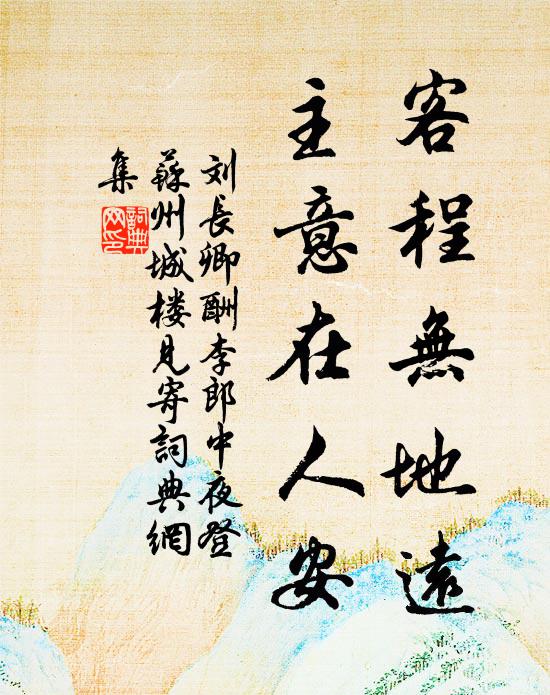 客程無地遠
主意在人安
刘長卿酬李郎中夜登
蘇州城楼見寄詞典網
集
詞典
网印